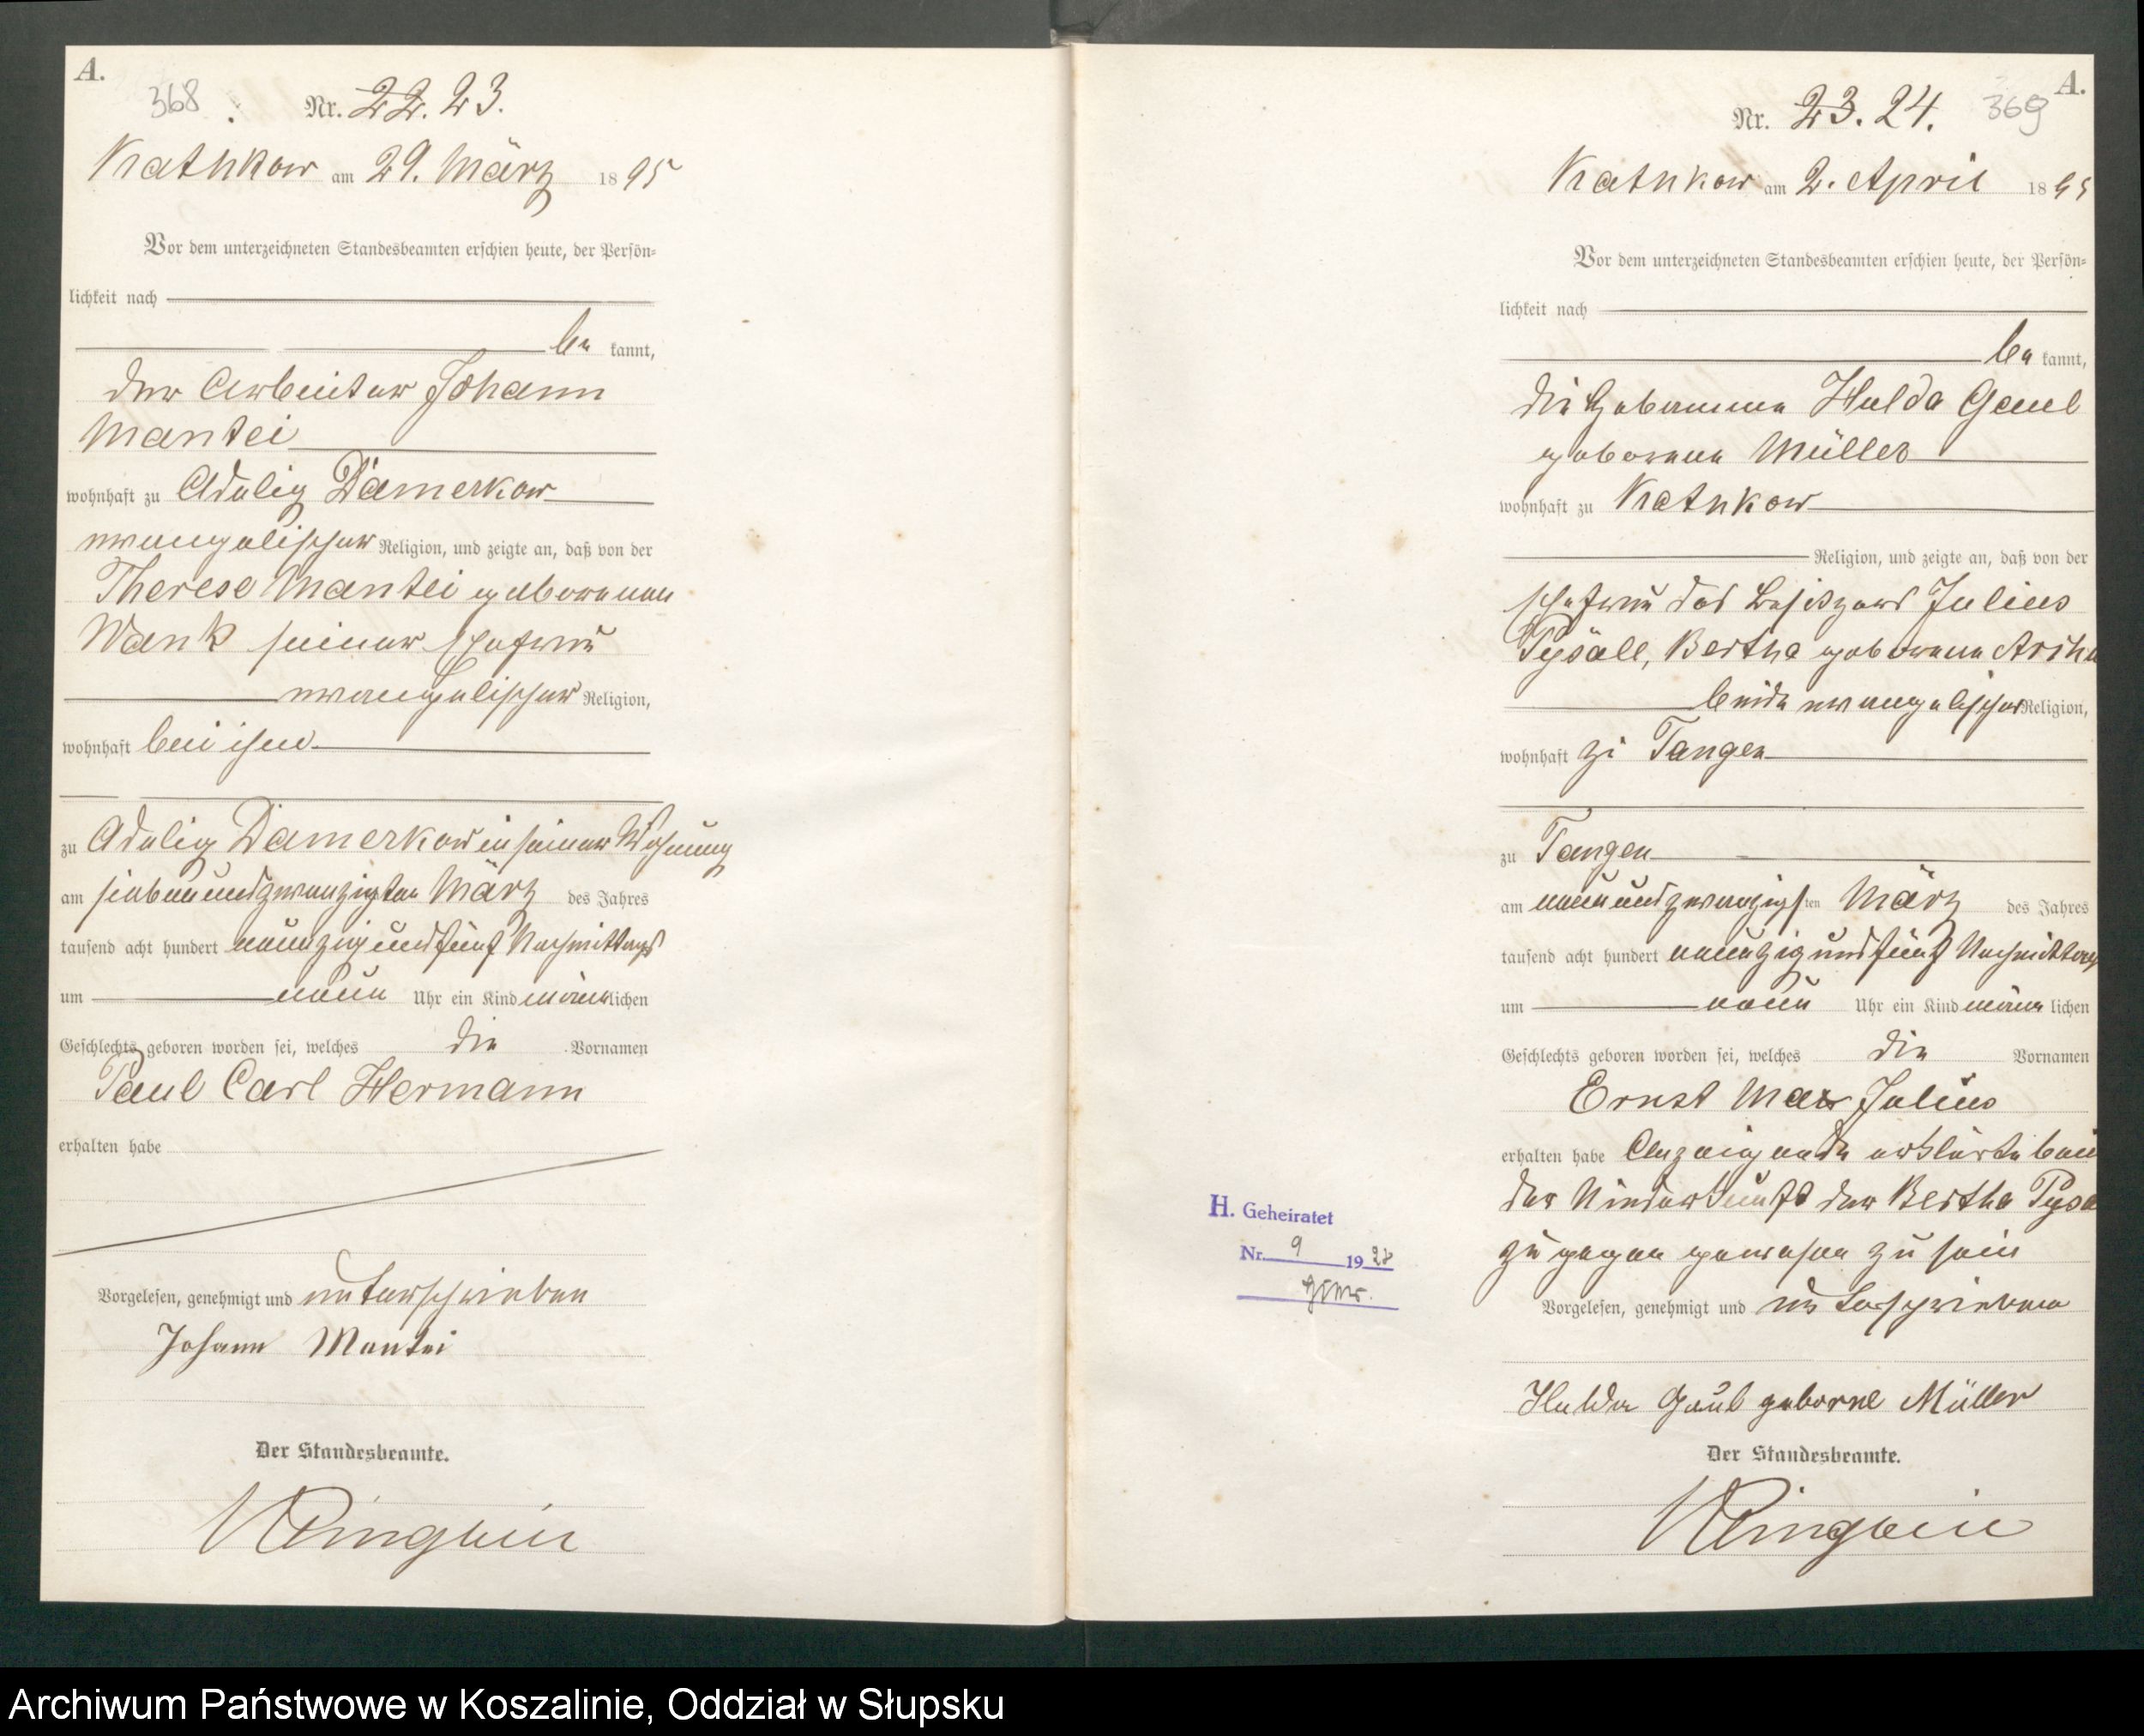 A.
368
Nr. 22. 23.
Kathkow am 29. März 1895
Vor dem unterzeichneten Standesbeamten erschien heute, der Persön-
lichkeit nach
be kannt,
der Arbeiter Johann
Mantei
wohnhaft zu Adelig Damerkow
evangelischer Religion, und zeigte an, daß von der
Therese Mantei geborenen
Wank seiner Ehefrau
evangelischer Religion,
wohnhaft bei ihm
zu Adelig Damerkow in seiner Wohnung
am siebenundzwanzigsten März des Jahres
tausend acht hundert neunzig und fünf Nachmittags
um neun Uhr ein Kind männlichen
Geschlechts geboren worden sei, welches die Vornamen
Paul Carl Hermann
erhalten habe
Vorgelesen, genehmigt und unterschrieben
Johann Mantei
Der Standesbeamte.
A.
369
Nr. 23. 24.
Kathkow am 2. April 1895
Vor dem unterzeichneten Standesbeamten erschien heute, der Persön-
lichkeit nach
be kannt,
die Hebamme Hulda Gaul
geborene Müller
wohnhaft zu Kathkow
Religion, und zeigte an, daß von der
Ehefrau des Besitzers Julius
Bertha geborene
beide evangelischer Religion,
wohnhaft zu Tangen
zu Tangen
am neunundzwanzigsten März des Jahres
tausend acht hundert neunzig und fünf Nachmittags
um neun Uhr ein Kind männ lichen
Geschlechts geboren worden sei, welches die Vornamen
Ernst Max Julius
erhalten habe Anzeigende erklärte bei
der Niederkunft der Bertha
zugegen gewesen zu sein
Vorgelesen, genehmigt und unterschrieben
Hulda Gaul geborne Müller
Der Standesbeamte.
H. Geheiratet
Nr. 9 1928
Archiwum Państwowe w Koszalinie, Oddział w Słupsku